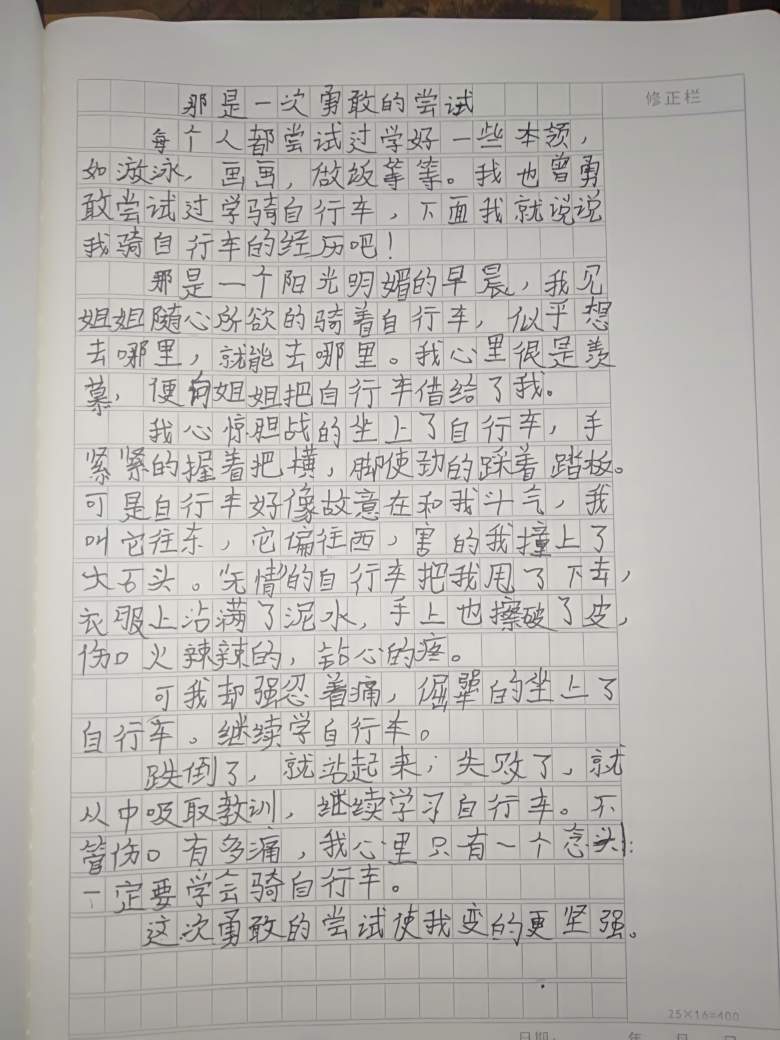 那是一次勇敢的尝试
修正栏
每个人都尝试过学好一些本领，
如游泳，画画，做饭等等。我也曾勇
敢尝试过学骑自行车，下面我就说说
我骑自行车的经历吧！
那是一个阳光明媚的早晨，我见
姐姐随心所欲的骑着自行车，似乎想
去哪里，就能去哪里。我心里很是羡
慕，便向姐姐把自行车借给了我。
我心惊胆战的坐上了自行车，手
紧紧的握着把横，脚使劲的踩着踏板。
可是自行车好像故意在和我斗气，我
叫它往东，它偏往西，害的我撞上了
大石头。无情的自行车把我甩了下去，
衣服上沾满了泥水，手上也擦破了皮，
伤口火辣辣的，钻心的疼。
可我却强忍着痛，倔犟的坐上了
自行车。继续学自行车。
跌倒了，就站起来；失败了，就
从中吸取教训，继续学习自行车。不
管伤口有多痛，我心里只有一个念头：
一定要学会骑自行车。
这次勇敢的尝试使我变的更坚强。
25×16=400
日期： 年 月 日